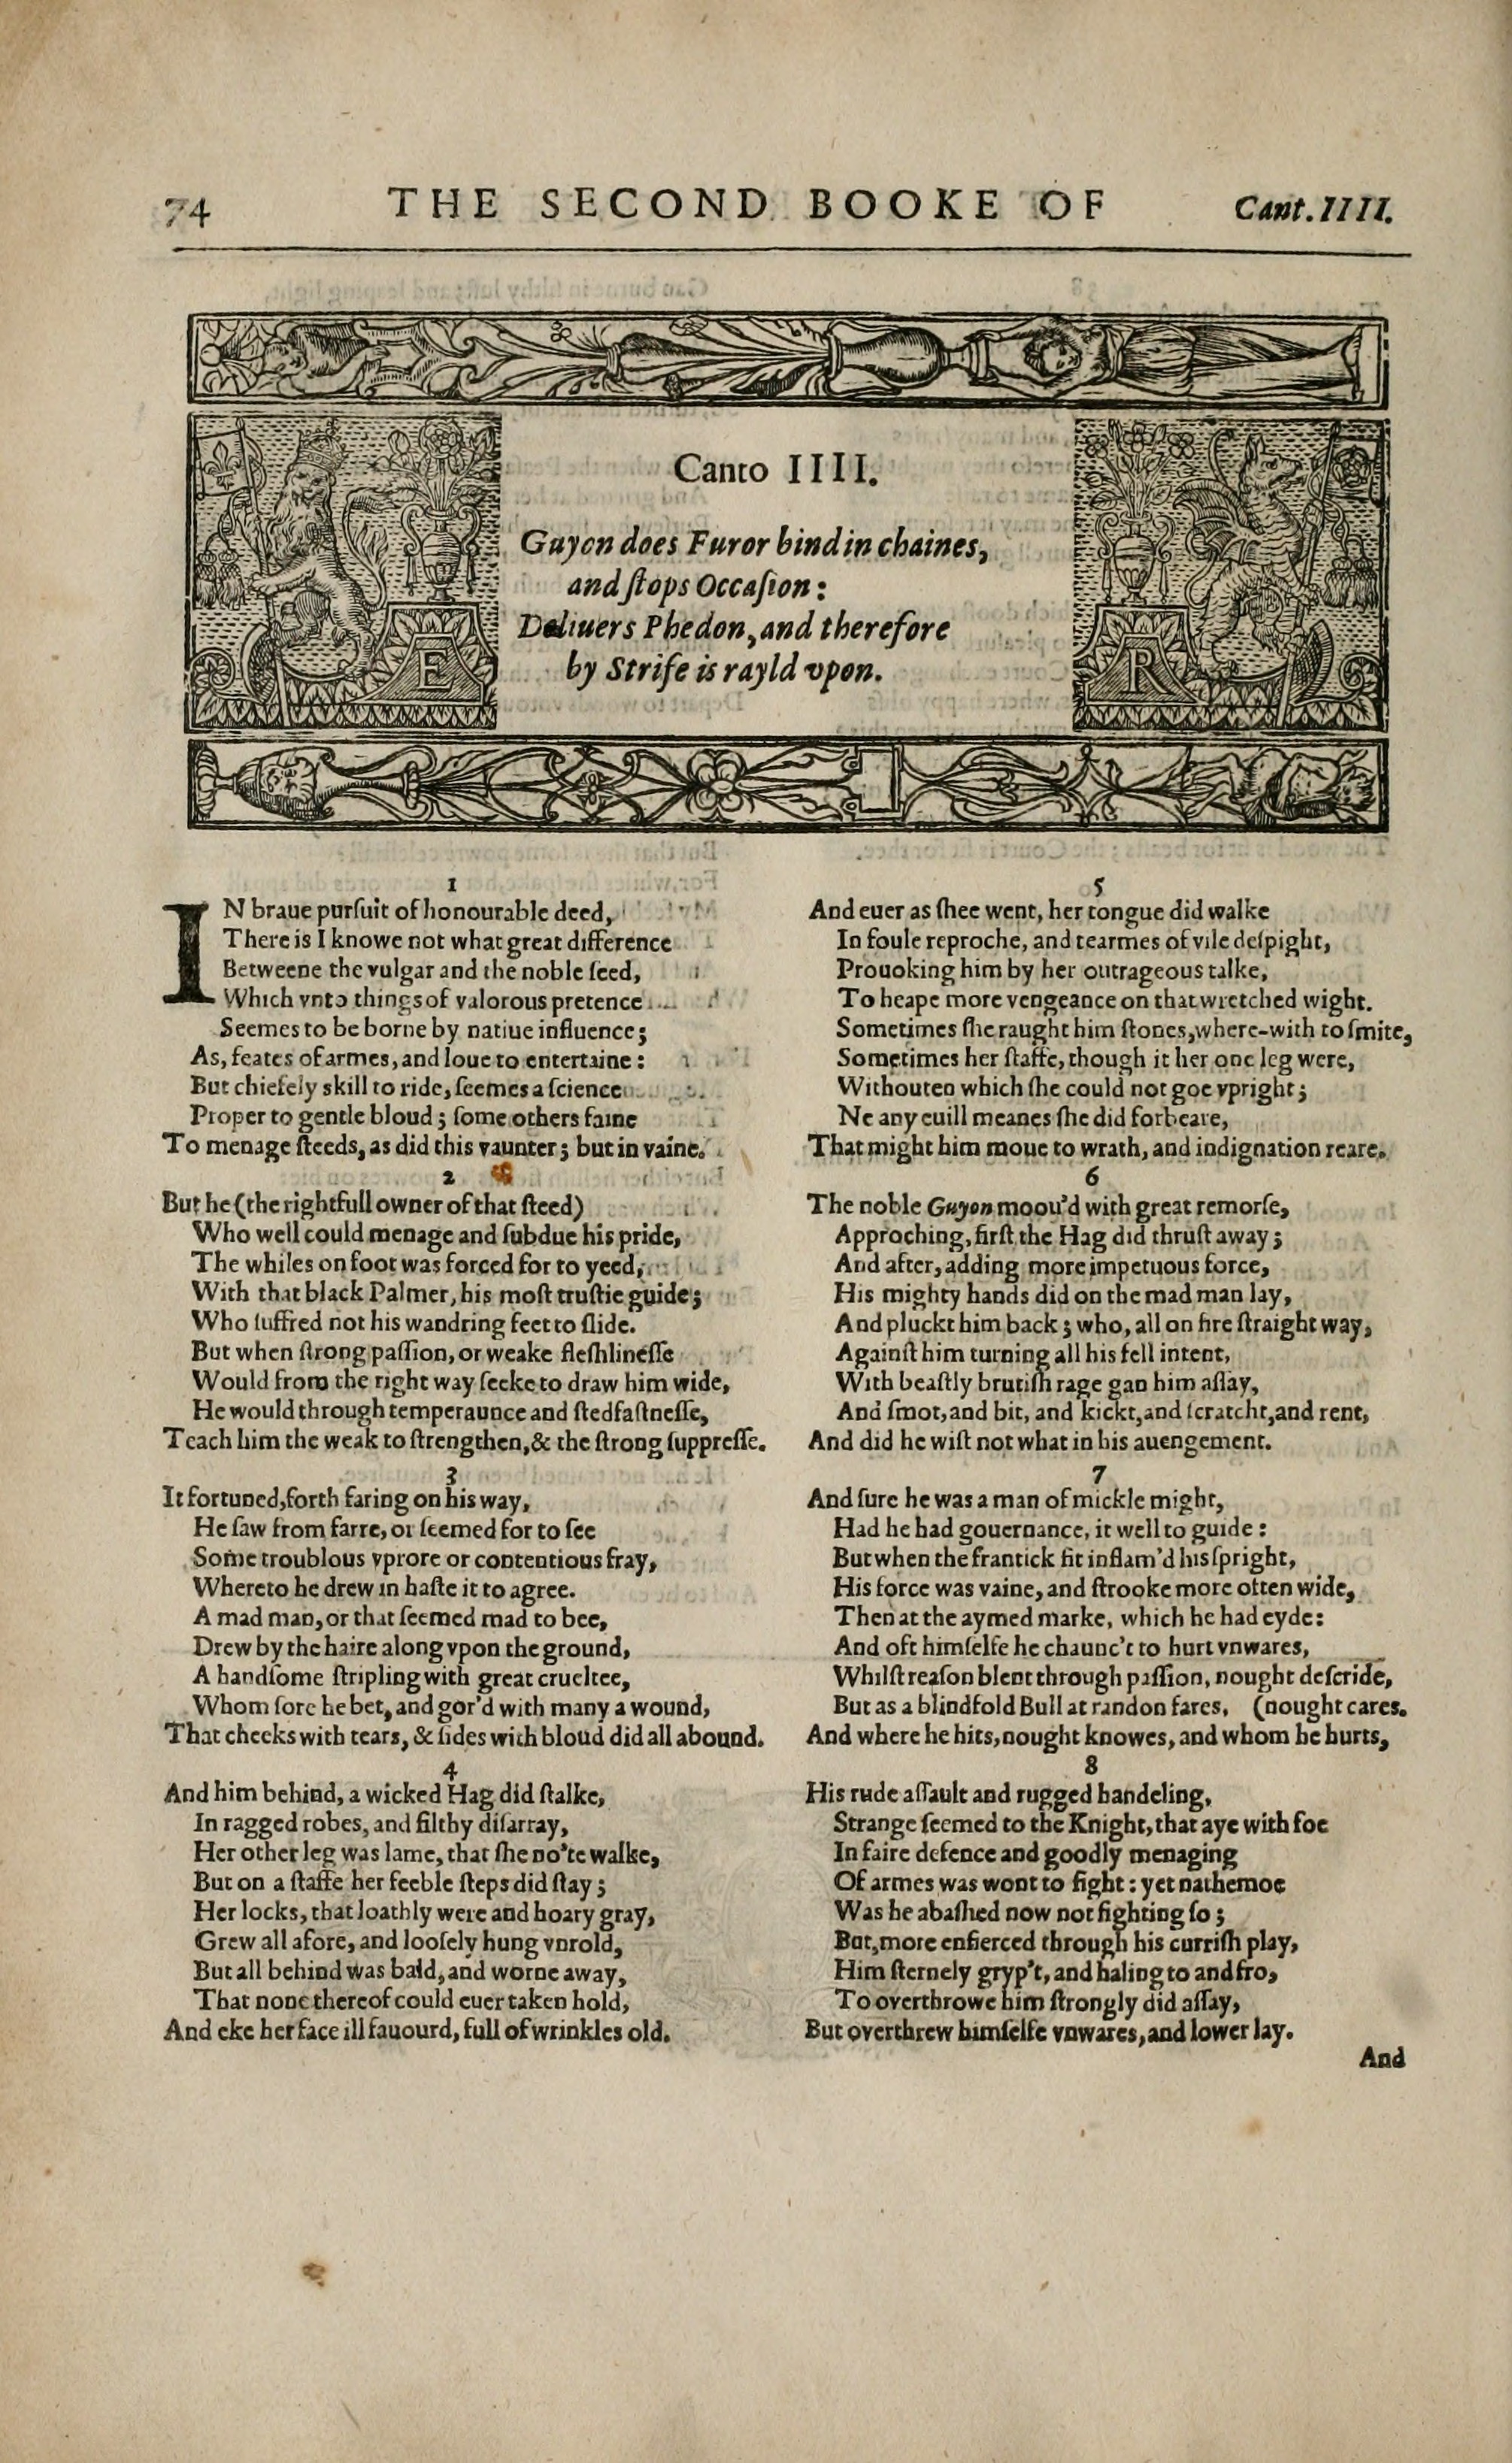 74 THE SECOND BOOKE OF Cant. IIII.
Canto IIII.
Guyon does Furor bind in chaines,
and ſtops Occaſion:
Deliuers Phedon, and therefore
by Strife is rayld vpon.
E
R
1
IN braue purſuit of honourable deed,
There is I knowe not what great difference
Betweene the vulgar and the noble ſeed,
Which vnto things of valorous pretence
Seemes to be borne by natiue influence;
As, feates of armes, and loue to entertaine:
But chiefely skill to ride, ſeemes a ſcience
Proper to gentle bloud; ſome others faine
To menage ſteeds, as did this vaunter; but in vaine.
2
But he (the rightfull owner of that ſteed)
Who well could menage and ſubdue his pride,
The whiles on foot was forced for to yeed,
With that black Palmer, his moſt truſtie guide;
Who ſuffred not his wandring feet to ſlide.
But when ſtrong paſſion, or weake fleſhlineſſe
Would from the right way ſeeke to draw him wide,
He would through temperaunce and ſtedfaſtneſſe,
Teach him the weak to ſtrengthen, & the ſtrong ſuppreſſe.
3
It fortuned, forth faring on his way,
He ſaw from farre, or ſeemed for to ſee
Some troublous vprore or contentious fray,
Whereto he drew in haſte it to agree.
A mad man, or that ſeemed mad to bee,
Drew by the haire along vpon the ground,
A handſome ſtripling with great crueltee,
Whom ſore he bet, and gor'd with many a wound,
That cheeks with tears, & ſides with bloud did all abound.
4
And him behind, a wicked Hag did ſtalke,
In ragged robes, and filthy diſarray,
Her other leg was lame, that ſhe no'te walke,
But on a ſtaffe her feeble ſteps did ſtay;
Her locks, that loathly were and hoary gray,
Grew all afore, and looſely hung vnrold,
But all behind was bald, and worne away,
That none thereof could euer taken hold,
And eke her face ill fauourd, full of wrinkles old.
5
And euer as ſhee went, her tongue did walke
In foule reproche, and tearmes of vile deſpight,
Prouoking him by her outrageous talke,
To heape more vengeance on that wretched wight.
Sometimes ſhe raught him ſtones, where-with to ſmite,
Sometimes her ſtaffe, though it her one leg were,
Withouten which ſhe could not goe vpright;
Ne any euill meanes ſhe did forbeare,
That might him moue to wrath, and indignation reare.
6
The noble Guyon moou'd with great remorſe,
Approching, firſt the Hag did thruſt away;
And after, adding more impetuous force,
His mighty hands did on the mad man lay,
And pluckt him back; who, all on fire ſtraight way,
Againſt him turning all his fell intent,
With beaſtly brutiſh rage gan him aſſay,
And ſmot, and bit, and kickt, and ſcratcht, and rent,
And did he wiſt not what in his auengement.
7
And ſure he was a man of mickle might,
Had he had gouernance, it well to guide:
But when the frantick fit inflam'd his ſpright,
His force was vaine, and ſtrooke more often wide,
Then at the aymed marke, which he had eyde:
And oft himſelfe he chaunc't to hurt vnwares,
Whilſt reaſon blent through paſſion, nought deſcride,
But as a blindfold Bull at randon fares, (nought cares.
And where he hits, nought knowes, and whom he hurts,
8
His rude aſſault and rugged handeling,
Strange ſeemed to the Knight, that aye with foe
In faire defence and goodly menaging
Of armes was wont to fight: yet nathemoe
Was he abaſhed now not fighting ſo;
But, more enfierced through his curriſh play,
Him ſternely gryp't, and haling to and fro,
To overthrowe him ſtrongly did aſſay,
But overthrew himſelfe vnwares, and lower lay.
And